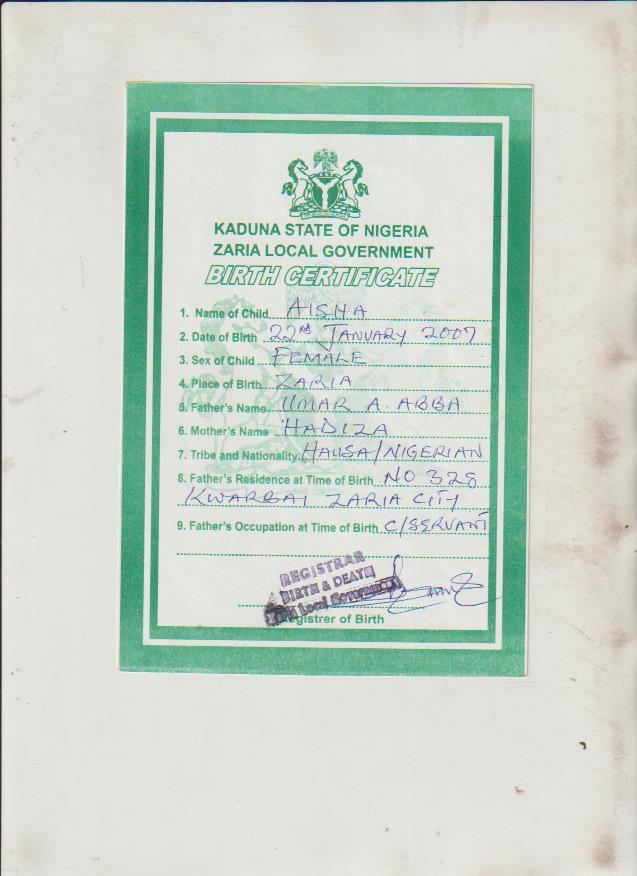 KADUNA STATE OF NIGERIA
ZARIA LOCAL GOVERNMENT
BIRTH CERTIFICATE
1. Name of Child AISHA
2. Date of Birth 22nd JANUARY 2007
3. Sex of Child FEMALE
4. Place of Birth ZARIA
5. Father's Name UMAR A. ABBA
6. Mother's Name HADIZA
7. Tribe and Nationality HAUSA/NIGERIAN
8. Father's Residence at Time of Birth NO 328
KWARBAI ZARIA CITY
9. Father's Occupation at Time of Birth C/SERVANT
REGISTRAR
BIRTH & DEATH
Local Government
Registrer of Birth